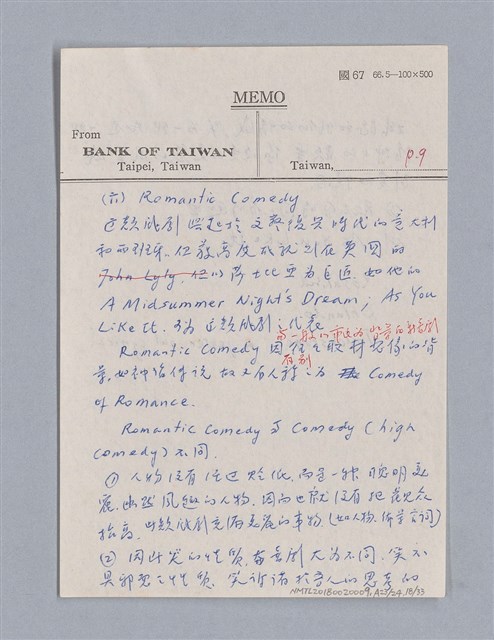 國67 66.5—100×500
MEMO
From
BANK OF TAIWAN
Taipei, Taiwan
Taiwan,
p.9
(六) Romantic Comedy
這類戲劇興起於文藝復興時代的意大利
和西班牙. 但最高度成就則在英國的
John Lyly, 但以莎士比亞為巨匠. 如他的
A Midsummer Night's Dream; As You
Like It. 為這類戲劇之代表
Romantic Comedy 因往往取材
有別
景. 如神話傳說 故又有人稱之為 Comedy
of Romance.
Romantic Comedy 與 Comedy (high
comedy) 不同.
① 人物沒有 貶低, 而是一群聰明美
麗. 幽默風趣的人物, 因而也就沒有把觀眾
抬高. 此類戲劇充滿美麗的事物 (如人物. 佈景. 言詞)
② 因此笑的性質, 大為不同, 笑不
具邪惡之性質,
NMTL20180020009, A23/24, 18/33